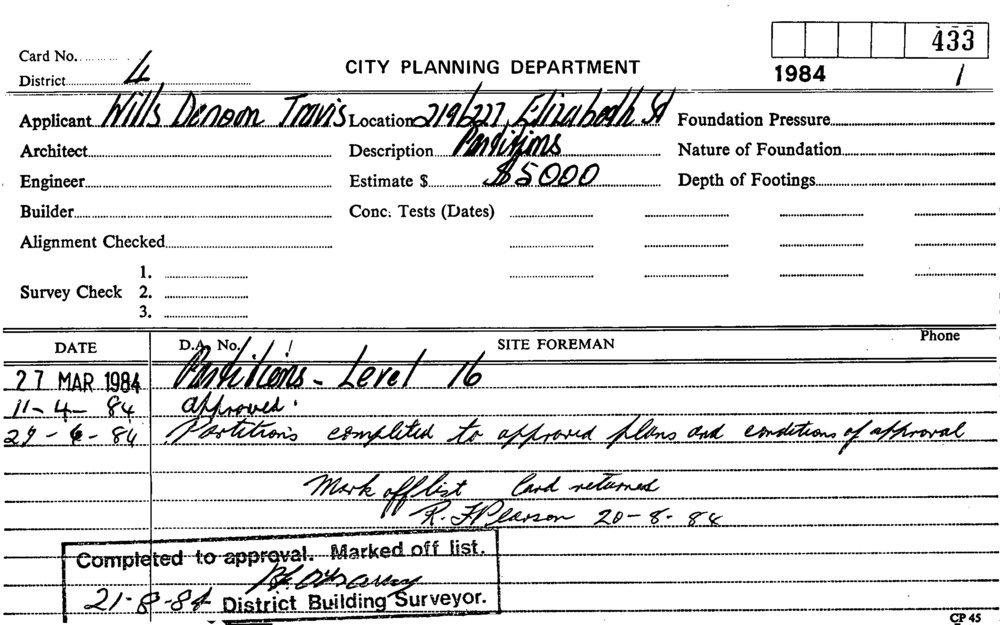 433
Card No.
District 4
CITY PLANNING DEPARTMENT
1984 1
Applicant Wills Denoon Travis Location 219/227 Elizabeth St Foundation Pressure
Architect Description Partitions Nature of Foundation
Engineer Estimate $ $5000 Depth of Footings
Builder Conc. Tests (Dates)
Alignment Checked
1.
Survey Check 2.
3.
DATE D.A. No. SITE FOREMAN Phone
27 MAR 1984 Partitions - Level 16
11-4-84 approved.
29-6-84 Partitions completed to approved plans and conditions of approval
Mark off list Card returned
R. F Pearson 20-8-84
Completed to approval. Marked off list.
21-8-84 District Building Surveyor.
CP 45